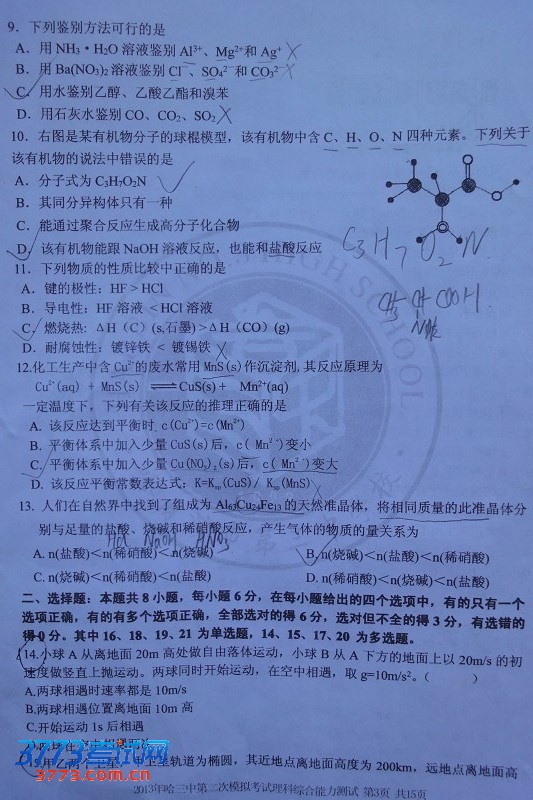 9. 下列鉴别方法可行的是
A. 用NH3·H2O溶液鉴别Al³⁺、Mg²⁺和Ag⁺
B. 用Ba(NO3)2溶液鉴别Cl⁻、SO4²⁻和CO3²⁻
C. 用水鉴别乙醇、乙酸乙酯和溴苯
D. 用石灰水鉴别CO、CO2、SO2
10. 右图是某有机物分子的球棍模型，该有机物中含C、H、O、N四种元素。下列关于
该有机物的说法中错误的是
A. 分子式为C3H7O2N
B. 其同分异构体只有一种
C. 能通过聚合反应生成高分子化合物
D. 该有机物能跟NaOH溶液反应，也能和盐酸反应
C3H7O2N
CH3 CH COOH
11. 下列物质的性质比较中正确的是
A. 键的极性：HF > HCl
B. 导电性：HF溶液 < HCl溶液
C. 燃烧热: ΔH（C）(s,石墨) >ΔH（CO）(g)
D. 耐腐蚀性：镀锌铁 < 镀锡铁
12.化工生产中含Cu²⁺的废水常用MnS(s)作沉淀剂,其反应原理为
Cu²⁺(aq) + MnS(s) ⇌ CuS(s) + Mn²⁺(aq)
一定温度下，下列有关该反应的推理正确的是
A. 该反应达到平衡时 c(Cu²⁺)=c(Mn²⁺)
B. 平衡体系中加入少量CuS(s)后, c( Mn²⁺)变小
C. 平衡体系中加入少量Cu(NO3)2(s)后, c( Mn²⁺)变大
D. 该反应平衡常数表达式: K=Ksp(CuS)/ Ksp(MnS)
13. 人们在自然界中找到了组成为Al63Cu24Fe13的天然准晶体，将相同质量的此准晶体分
别与足量的盐酸、烧碱和稀硝酸反应，产生气体的物质的量关系为
HCl NaOH HNO3
A. n(盐酸)＜n(稀硝酸)＜n(烧碱) B. n(烧碱)＜n(盐酸)＜n(稀硝酸)
C. n(烧碱)＜n(稀硝酸)＜n(盐酸) D. n(稀硝酸)＜n(烧碱)＜n(盐酸)
二、选择题：本题共8小题，每小题6分，在每小题给出的四个选项中，有的只有一个
选项正确，有的有多个选项正确，全部选对的得6分，选对但不全的得3分，有选错的
得0分。其中16、18、19、21为单选题，14、15、17、20为多选题。
14.小球A从离地面20m高处做自由落体运动，小球B从A下方的地面上以20m/s的初
速度做竖直上抛运动。两球同时开始运动，在空中相遇，取g=10m/s²。（ ）
A.两球相遇时速率都是10m/s
B.两球相遇位置离地面10m高
C.开始运动1s后相遇
甲乙两个卫星 轨道为椭圆，其近地点离地面高度为200km，远地点离地面高
3773考试网
3773.com.cn
2013年哈三中第二次模拟考试理科综合能力测试 第3页 共15页